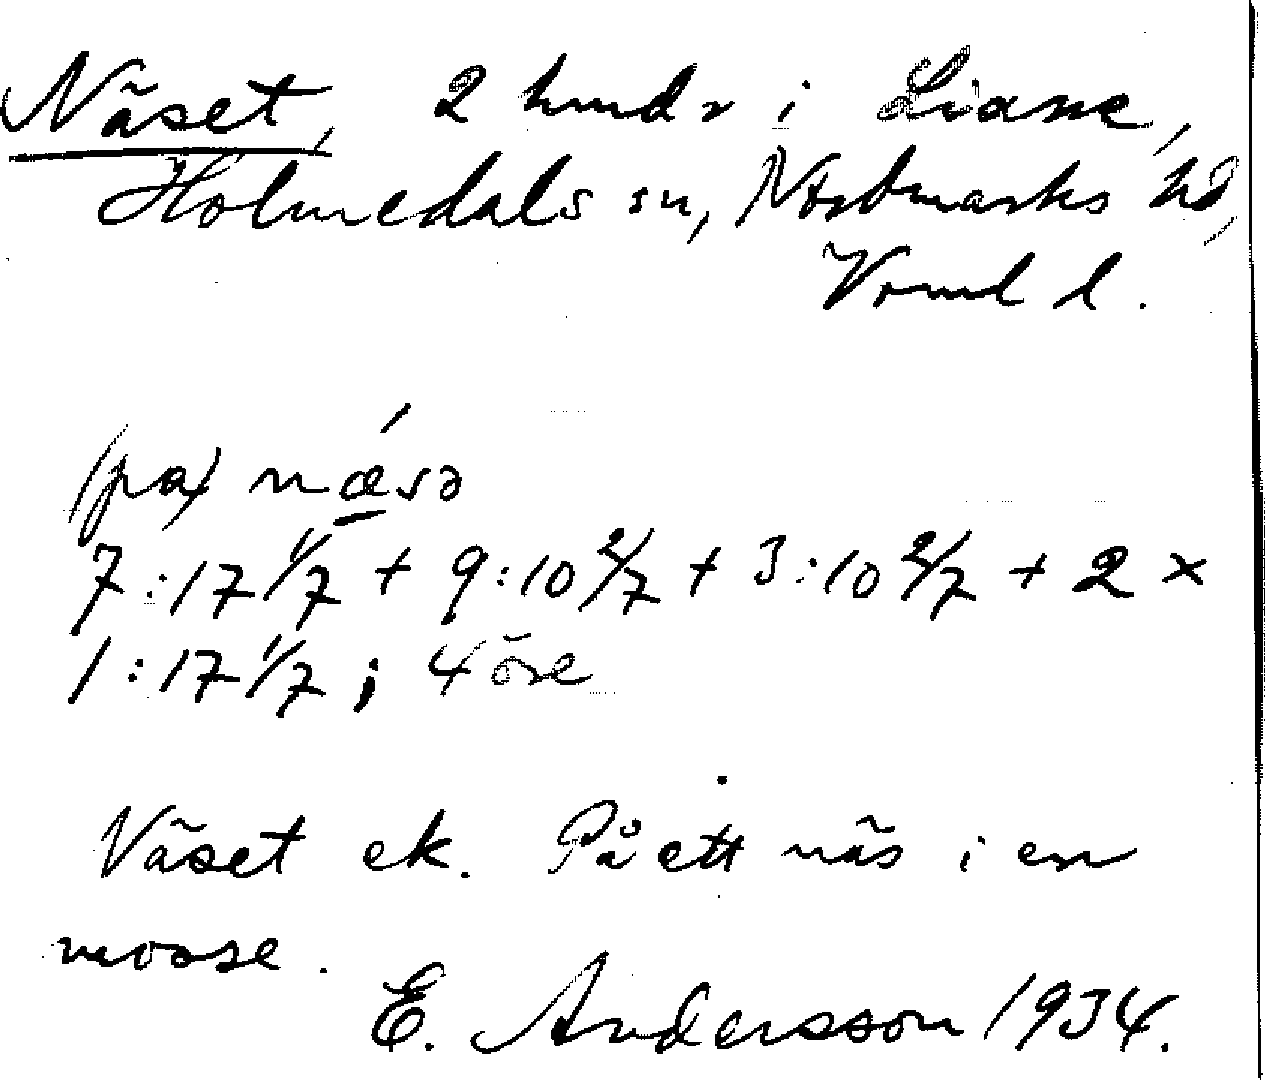 Näset, 2 hmdr i Liane,
Holmedals sn, Nordmarks hd,
Vrml l.
(pa) nǽsə
7:17 1/7 + 9:10 2/7 + 3:10 2/7 + 2 ×
1:17 1/7; 4 öre
Näset ek. På ett näs i en
mosse.
E. Andersson 1934.